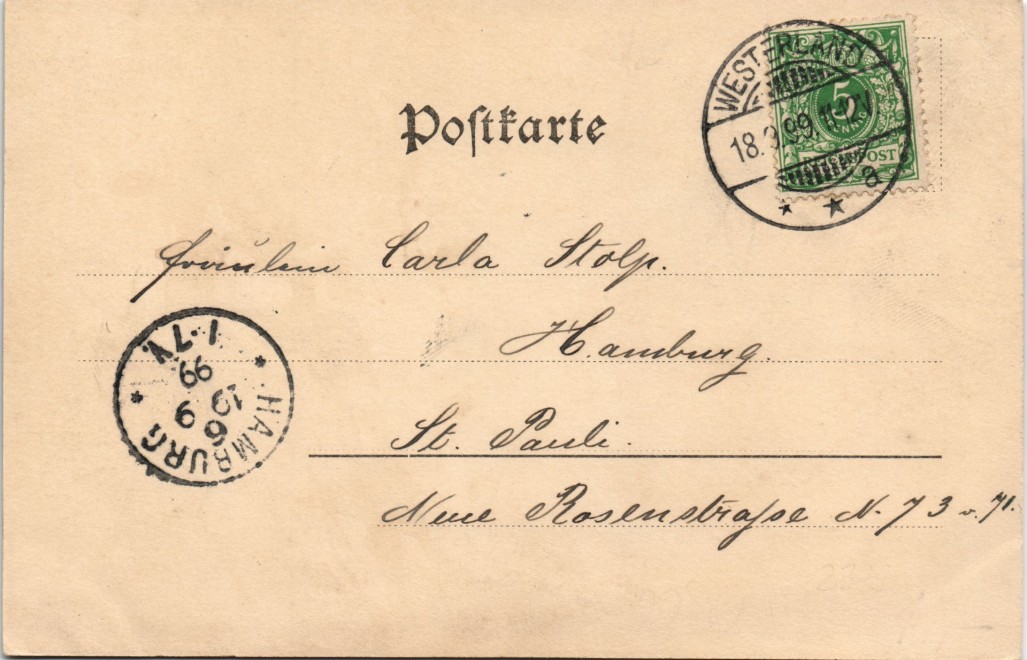 Postkarte
WESTERLAND
18.9.99. 11-12V
a
5
REICHSPOST
Fräulein Carla Stolp.
Hamburg.
St. Pauli.
Neue Rosenstraße N. 73
HAMBURG
6
19 9
99
1-7V.